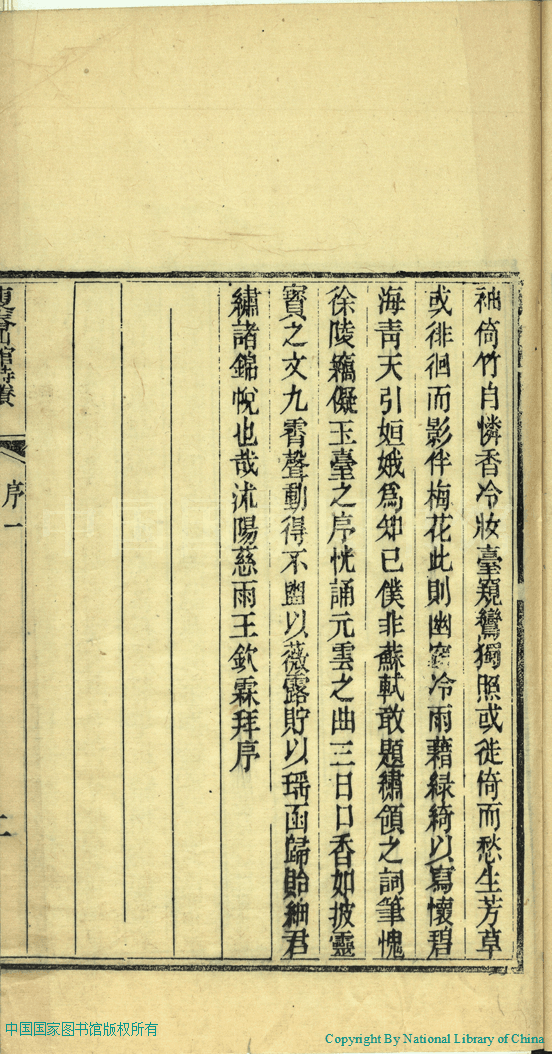 袖倚竹自憐香冷妝臺窺鸞獨照或徙倚而愁生芳草
或徘徊而影伴梅花此則幽窗冷雨藉綠綺以寫懷碧
海青天引姮娥爲知己僕非蘇軾敢題繡領之詞筆愧
徐陵竊儗玉臺之序恍誦元雲之曲三日口香如披靈
寶之文九霄聲動得不盥以薇露貯以瑶函歸貽細君
繡諸錦帨也哉沭陽慈雨王欽霖拜序
序一
二
中国国家图书馆版权所有
Copyright By National Library of China